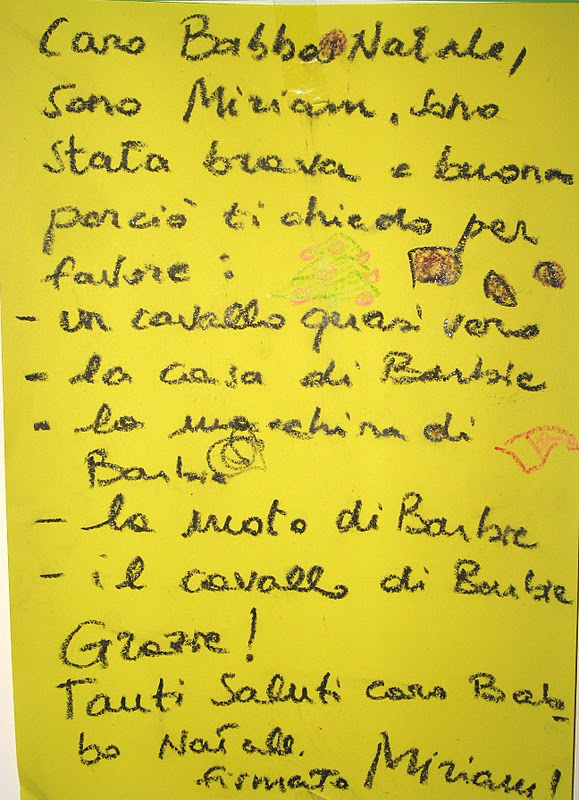 Caro Babbo Natale,
sono Miriam, sono
stata brava e buona
perciò ti chiedo per
favore:
- un cavallo quasi vero
- la casa di Barbie
- la macchina di
Barbie
- la moto di Barbie
- il cavallo di Barbie
Grazie!
Tanti Saluti caro Bab-
bo Natale.
firmato Miriam!